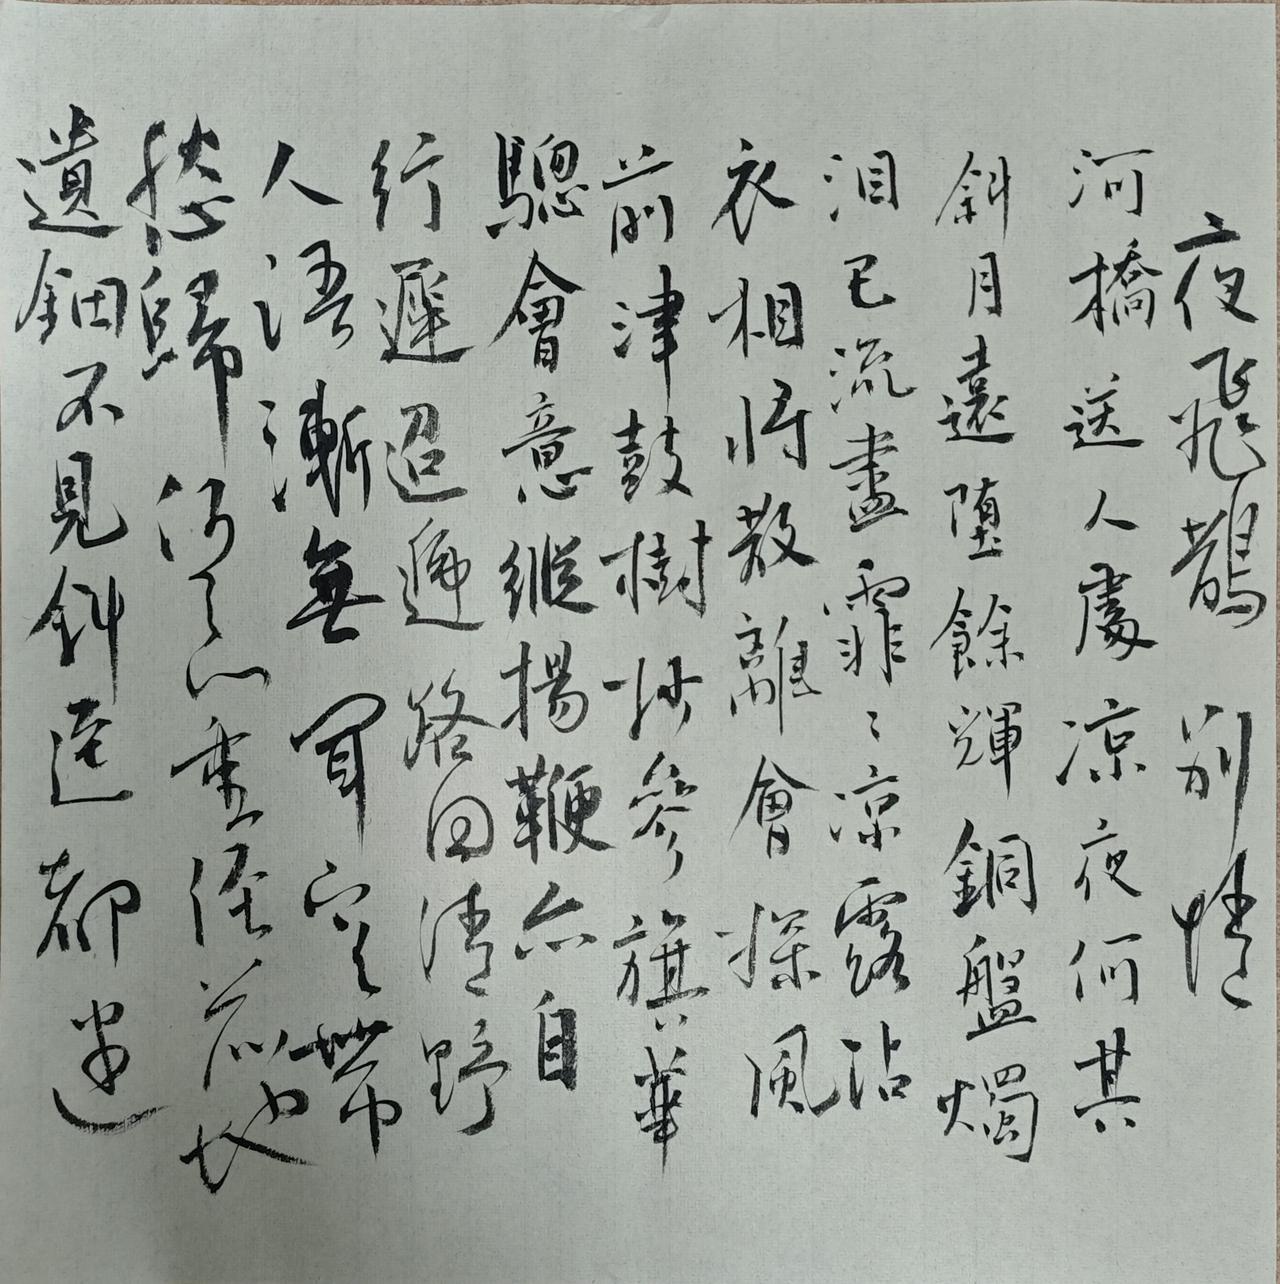 夜飛鵲 別情
河橋送人處涼夜何其
斜月遠墮餘輝銅盤燭
泪已流盡霏々凉露沾
衣相將散離會探風
前津鼓樹杪參旗華
驄會意縱揚鞭亦自
行遲迢遞路回清野
人語漸無聞空帶
愁歸何意重經前地
遺鈿不見斜逕都迷